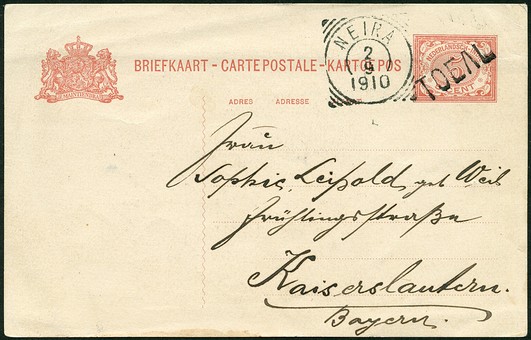 BRIEFKAART - CARTE POSTALE - KARTOEPOS
NEIRA
2
9
1910
TOEAL
NEDERLANDSCH
CENT
ADRES ADRESSE
Frau
Sophie Leipold geb Weil
Frühlingsstraße
Kaiserslautern.
Bayern.